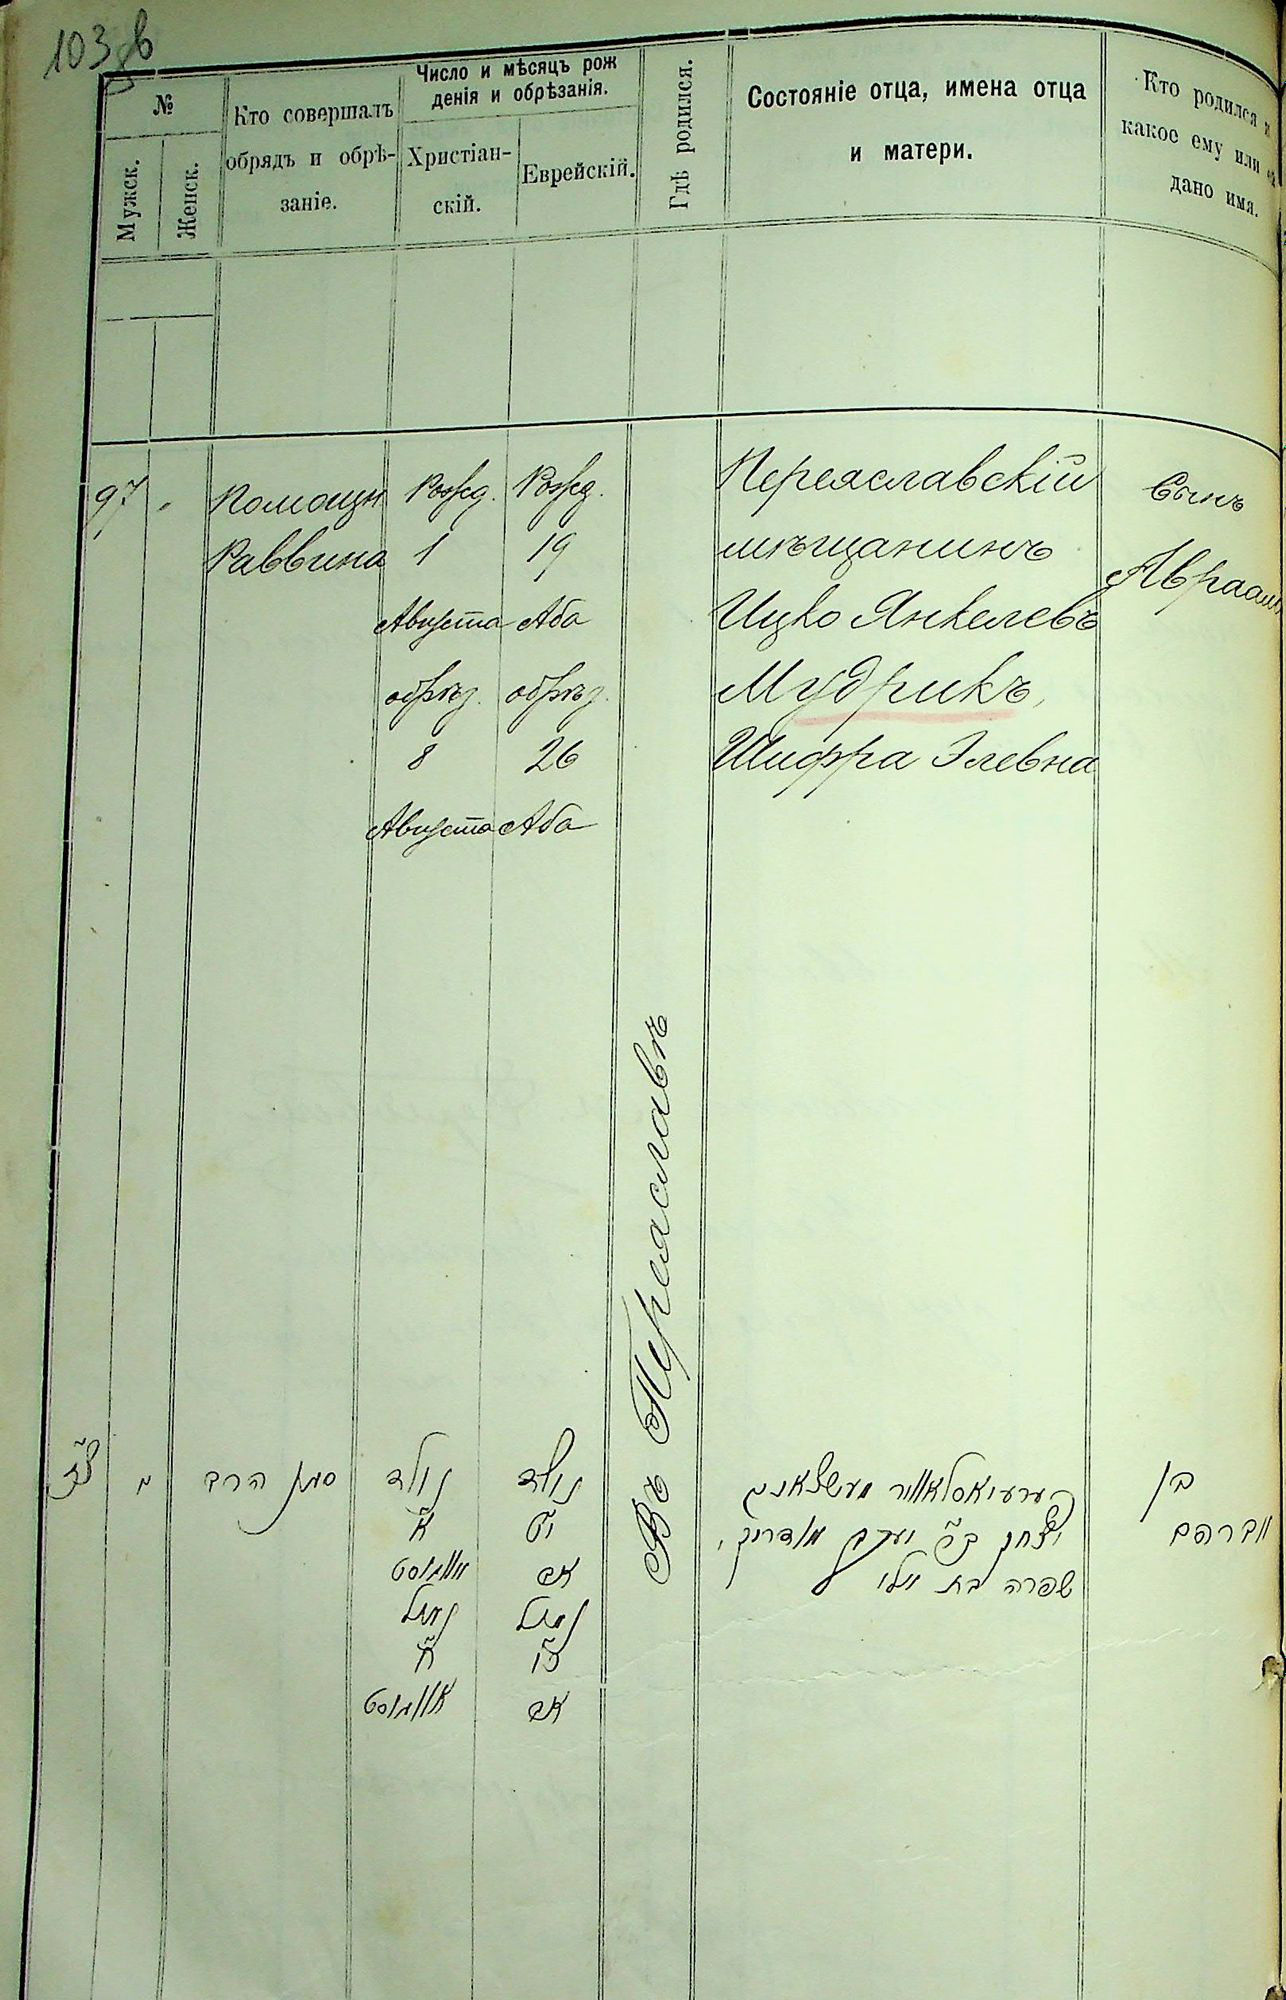 103 зв
№
Мужск.
Женск.
Кто совершалъ
обрядъ и обрѣ-
заніе.
Число и мѣсяцъ рож
денія и обрѣзанія.
Христіан-
скій.
Еврейскій.
Гдѣ родился.
Состояніе отца, имена отца
и матери.
Кто родился и
какое ему или ей
дано имя.
97
Помощн
Раввина
Рожд.
1
Августа
обрѣз.
8
Августа
Рожд.
19
Аба
обрѣз.
26
Аба
Въ Переяславѣ
Переяславскій
мѣщанинъ
Ицко Янкелевъ
Мудрикъ,
Шифра Элевна
Сынъ
Авраамъ
צז
סגן הרב
נולד
א
אווגוסט
נמול
ח
אווגוסט
נולד
יט
אב
נמול
כו
אב
פערעיאסלאווער מעשצאנין
יצחק ב״ר יעקב מודריק,
שפרה בת אלי
בן
אברהם